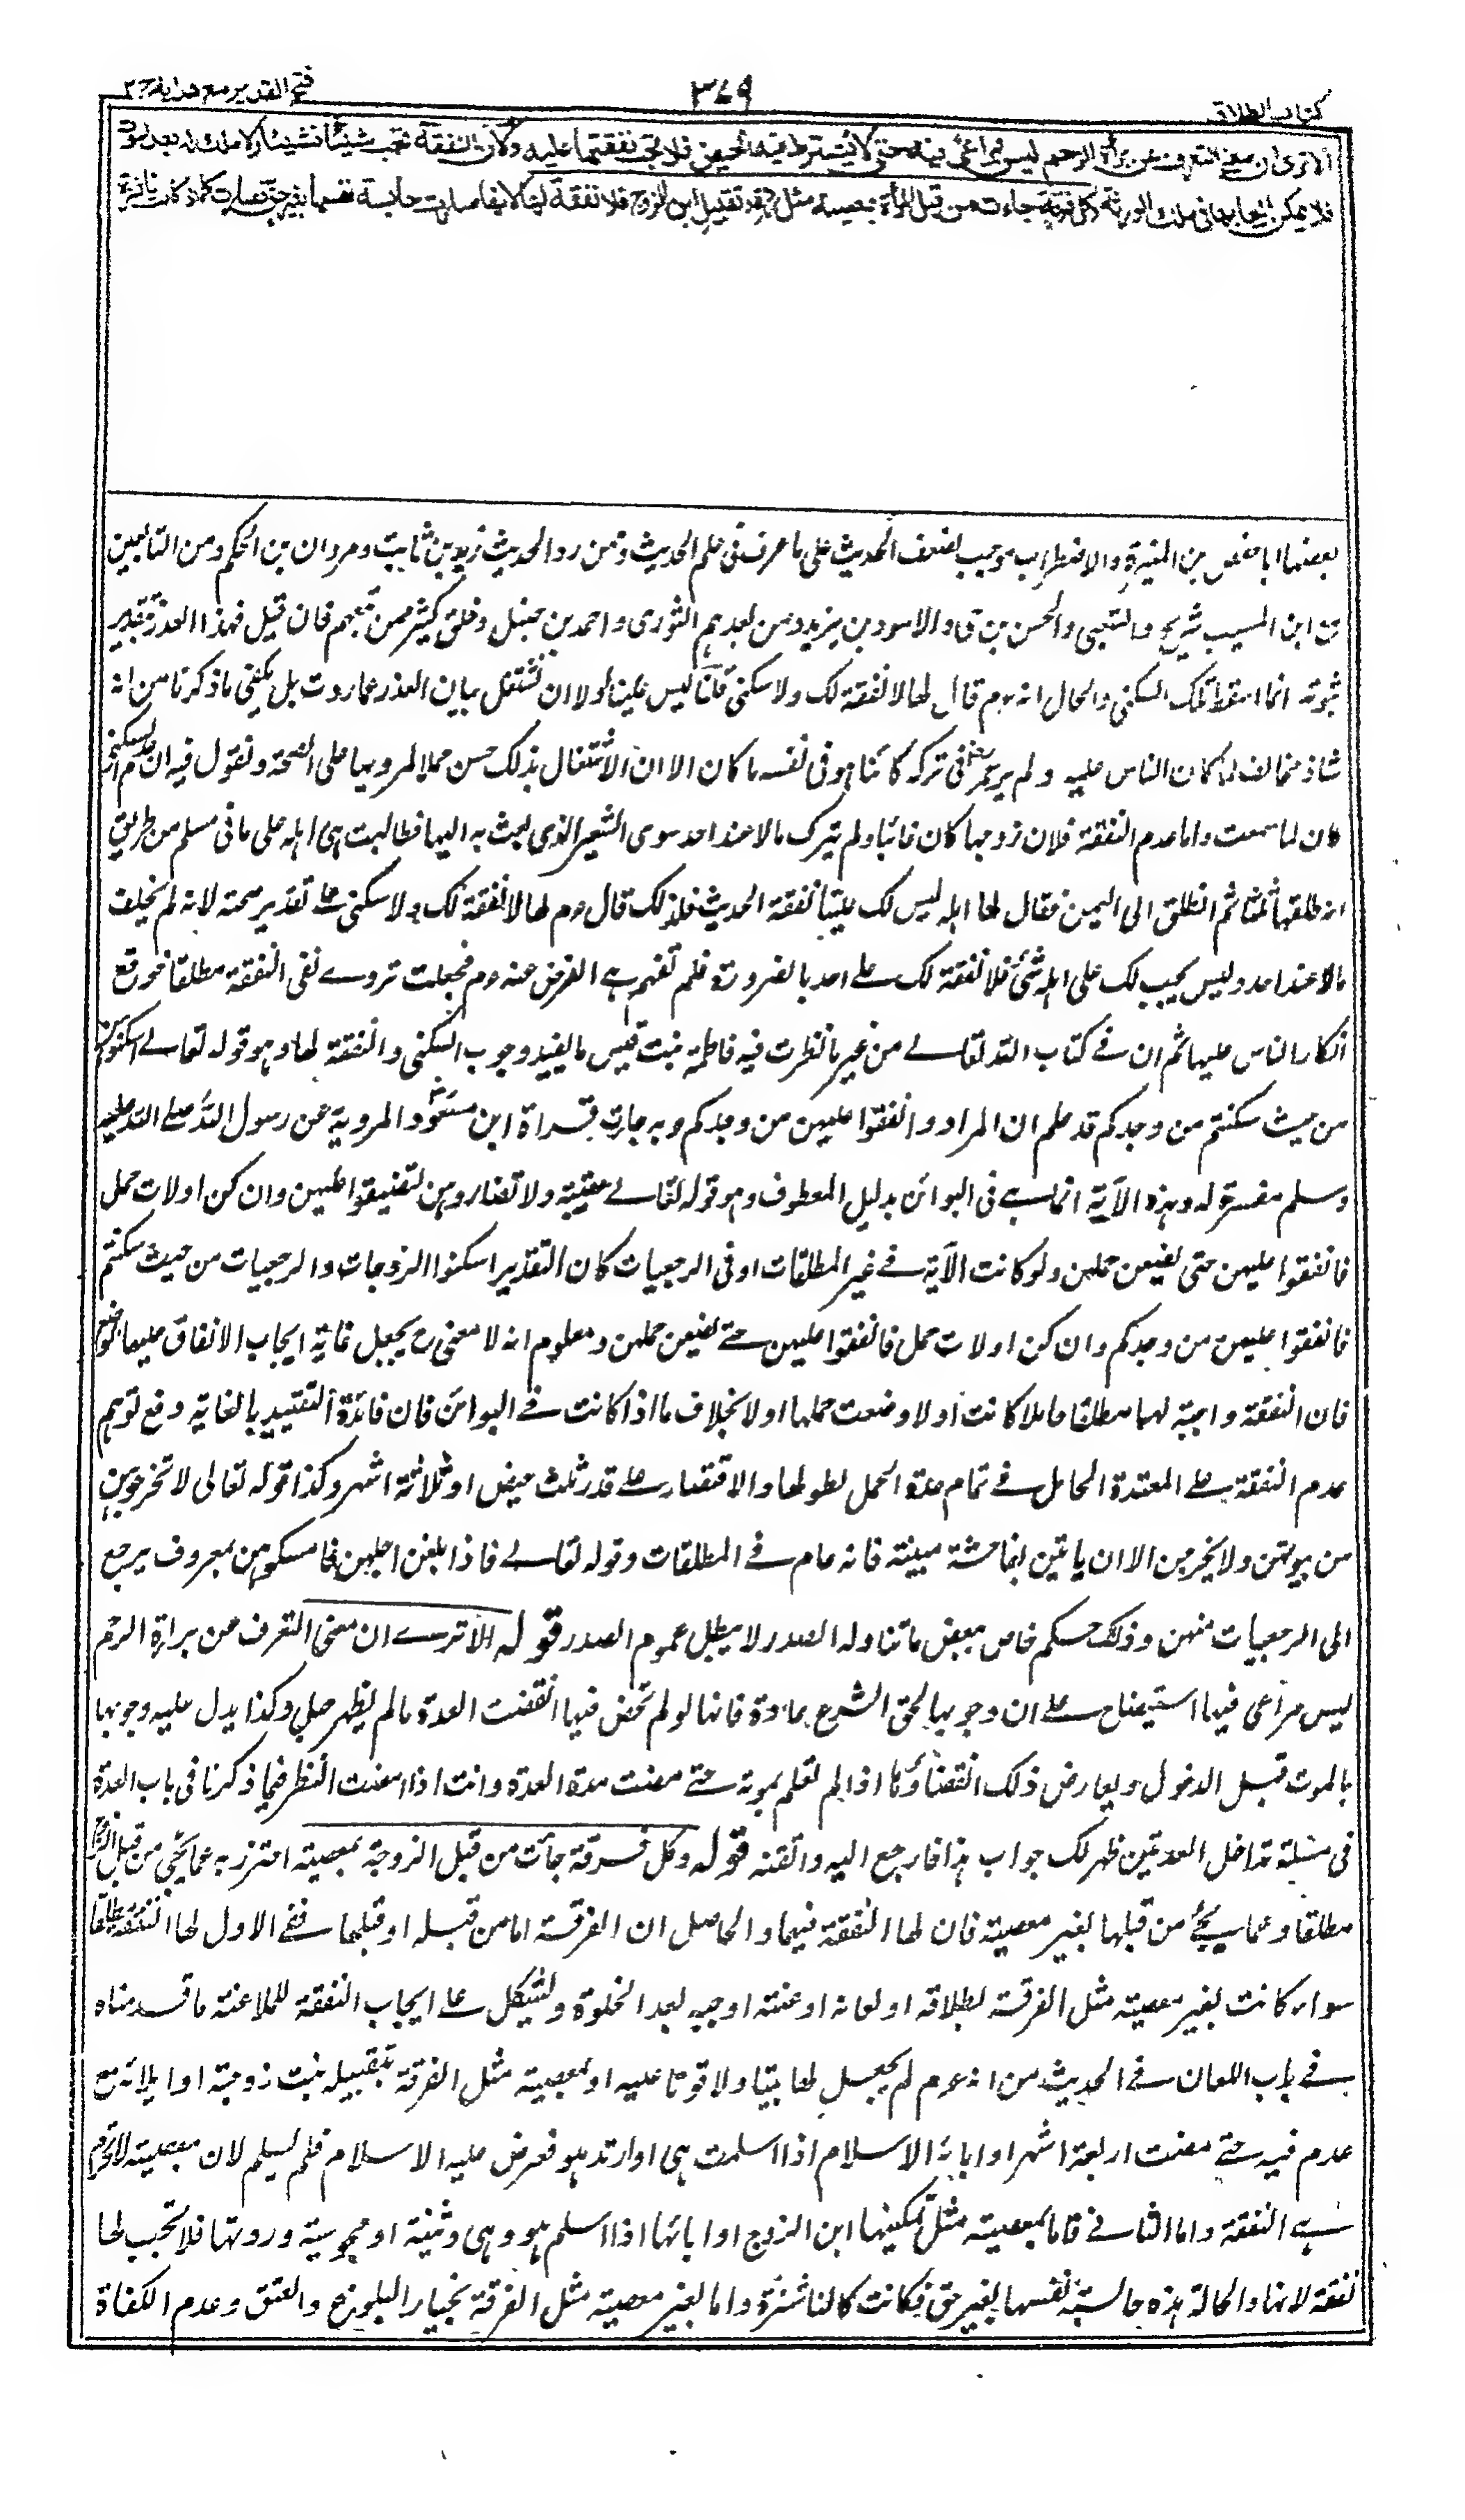 كتاب الطلاق
٣٧٩
فتح القدير مع هداية ج٢
الا ترى ان معنى التعرف عن براءة الرحم ليس بمراعى فيه حتى لا يشترط فيه الحيض فلا تجب نفقتها عليه ولان النفقة تجب شيئا فشيئا ولا ملك له بعد الموت
فلا يمكن ايجابها فى ملك الورثة وكل فرقة جاءت من قبل المرأة بمعصية مثل الردة وتقبيل ابن الزوج فلا نفقة لها لانها صارت حابسة نفسها بغير حق فصارت كما اذا كانت ناشزة
بعضها ابا حفص بن المغيرة والاضطراب موجب لضعف الحديث على ما عرف فى علم الحديث وممن رد الحديث زيد بن ثابت ومروان بن الحكم ومن التابعين
مع ابن المسيب شريح والشعبى والحسن بن حى والاسود بن يزيد ومن بعدهم الثورى واحمد بن حنبل وخلق كثير ممن تبعهم فان قيل فهذا العذر
ثبوته انما اسقط تلك السكنى والحال انه عم قال لها لا نفقة لك ولا سكنى قلنا ليس علينا اولا ان نشتغل ببيان العذر عما روت بل يكفى ما ذكرنا من انه
شاذ مخالف لما كان الناس عليه ولم ير عمر فى تركه كائنا هو فى نفسه ما كان الا ان الاشتغال بذلك حسن حملا لمرويها على الصحة ونقول فيه ان عدم السكنى
كان لما سمعت واما عدم النفقة فلان زوجها كان غائبا ولم يترك مالا عند احد سوى الشعير الذى بعث به اليها فطالبت هى اهله على ما فى مسلم من طريق
انه طلقها ثلثا ثم انطلق الى اليمن فقال لها اهله ليس لك علينا نفقة الحديث فلذلك قال عم لها لا نفقة لك ولا سكنى على تقدير صحته لانه لم يخلف
مالا عند احد وليس يجب لك على اهله شئ فلا نفقة لك على احد بالضرورة فلم تفهم هى الغرض عنه عم فجعلت تروى نفى النفقة مطلقا فوقع
انكار الناس عليها ثم ان فى كتاب الله تعالى من غير ما نظرت فيه فاطمة بنت قيس ما يفيد وجوب السكنى والنفقة لها وهو قوله تعالى اسكنوهن
من حيث سكنتم من وجدكم قد علم ان المراد وانفقوا عليهن من وجدكم وبه جاءت قراءة ابن مسعود المروية عن رسول الله صلى الله عليه
وسلم مفسرة له وهذه الآية انما هى فى البوائن بدليل المعطوف وهو قوله تعالى عقيبه ولا تضاروهن لتضيقوا عليهن وان كن اولات حمل
فانفقوا عليهن حتى يضعن حملهن ولو كانت الآية فى غير المطلقات او فى الرجعيات كان التقدير اسكنوا الزوجات والرجعيات من حيث سكنتم
فانفقوا عليهن من وجدكم وان كن اولات حمل فانفقوا عليهن حتى يضعن حملهن ومعلوم انه لا معنى ح يجعل غاية ايجاب الانفاق عليها الوضع
فان النفقة واجبة لها مطلقا حاملا كانت اولا وضعت حملها اولا بخلاف ما اذا كانت فى البوائن فان فائدة التقييد بالغاية دفع توهم
عدم النفقة على المعتدة الحامل فى تمام مدة الحمل لطولها والاقتصار على قدر ثلث حيض او ثلاثة اشهر وكذا قوله تعالى لا تخرجوهن
من بيوتهن ولا يخرجن الا ان ياتين بفاحشة مبينة فانه عام فى المطلقات وقوله تعالى فاذا بلغن اجلهن فامسكوهن بمعروف يرجع
الى الرجعيات منهن وذلك حكم خاص ببعض ما تناوله الصدر لا يبطل عموم الصدر قوله الا ترى ان معنى التعرف عن براءة الرحم
ليس مراعى فيها استيضاح على ان وجوبها لحق الشرع عادة فانها لو لم تحض فيها انقضت العدة ما لم يظهر حبل وكذا يدل عليه وجوبها
بالموت قبل الدخول ويعارض ذلك انقضاؤها اذا لم تعلم بموته حتى مضت مدة العدة وانت اذا امعنت النظر فيما ذكرنا فى باب العدة
فى مسئلة تداخل العدتين ظهر لك جواب هذا فارجع اليه واتقنه قوله وكل فرقة جاءت من قبل الزوجة بمعصية احترز به عما يجئ من قبل الزوج
مطلقا وعما يجئ من قبلها بغير معصية فان لها النفقة فيهما والحاصل ان الفرقة اما من قبله او قبلها ففى الاول لها النفقة مطلقا
سواء كانت بغير معصية مثل الفرقة بطلاقه او لعانه او عنته او جبه بعد الخلوة ويشكل على ايجاب النفقة للملاعنة ما قدمناه
فى باب اللعان فى الحديث من انه عم لم يجعل لها بيتا ولا قوتا عليه او بمعصية مثل الفرقة بتقبيله بنت زوجته او ايلائه مع
عدم فيه حتى مضت اربعة اشهر او ابائه الاسلام اذا اسلمت هى او ارتد هو فعرض عليه الاسلام فلم يسلم لان بمعصيته لا تحرم
هى النفقة واما الثانى فاما بمعصية مثل تمكينها ابن الزوج او ابائها اذا اسلم هو وهى وثنية او مجوسية وردتها فلا تجب لها
نفقة لانها والحالة هذه حابسة نفسها بغير حق فكانت كالناشزة واما بغير معصية مثل الفرقة بخيار البلوغ والعتق وعدم الكفاءة